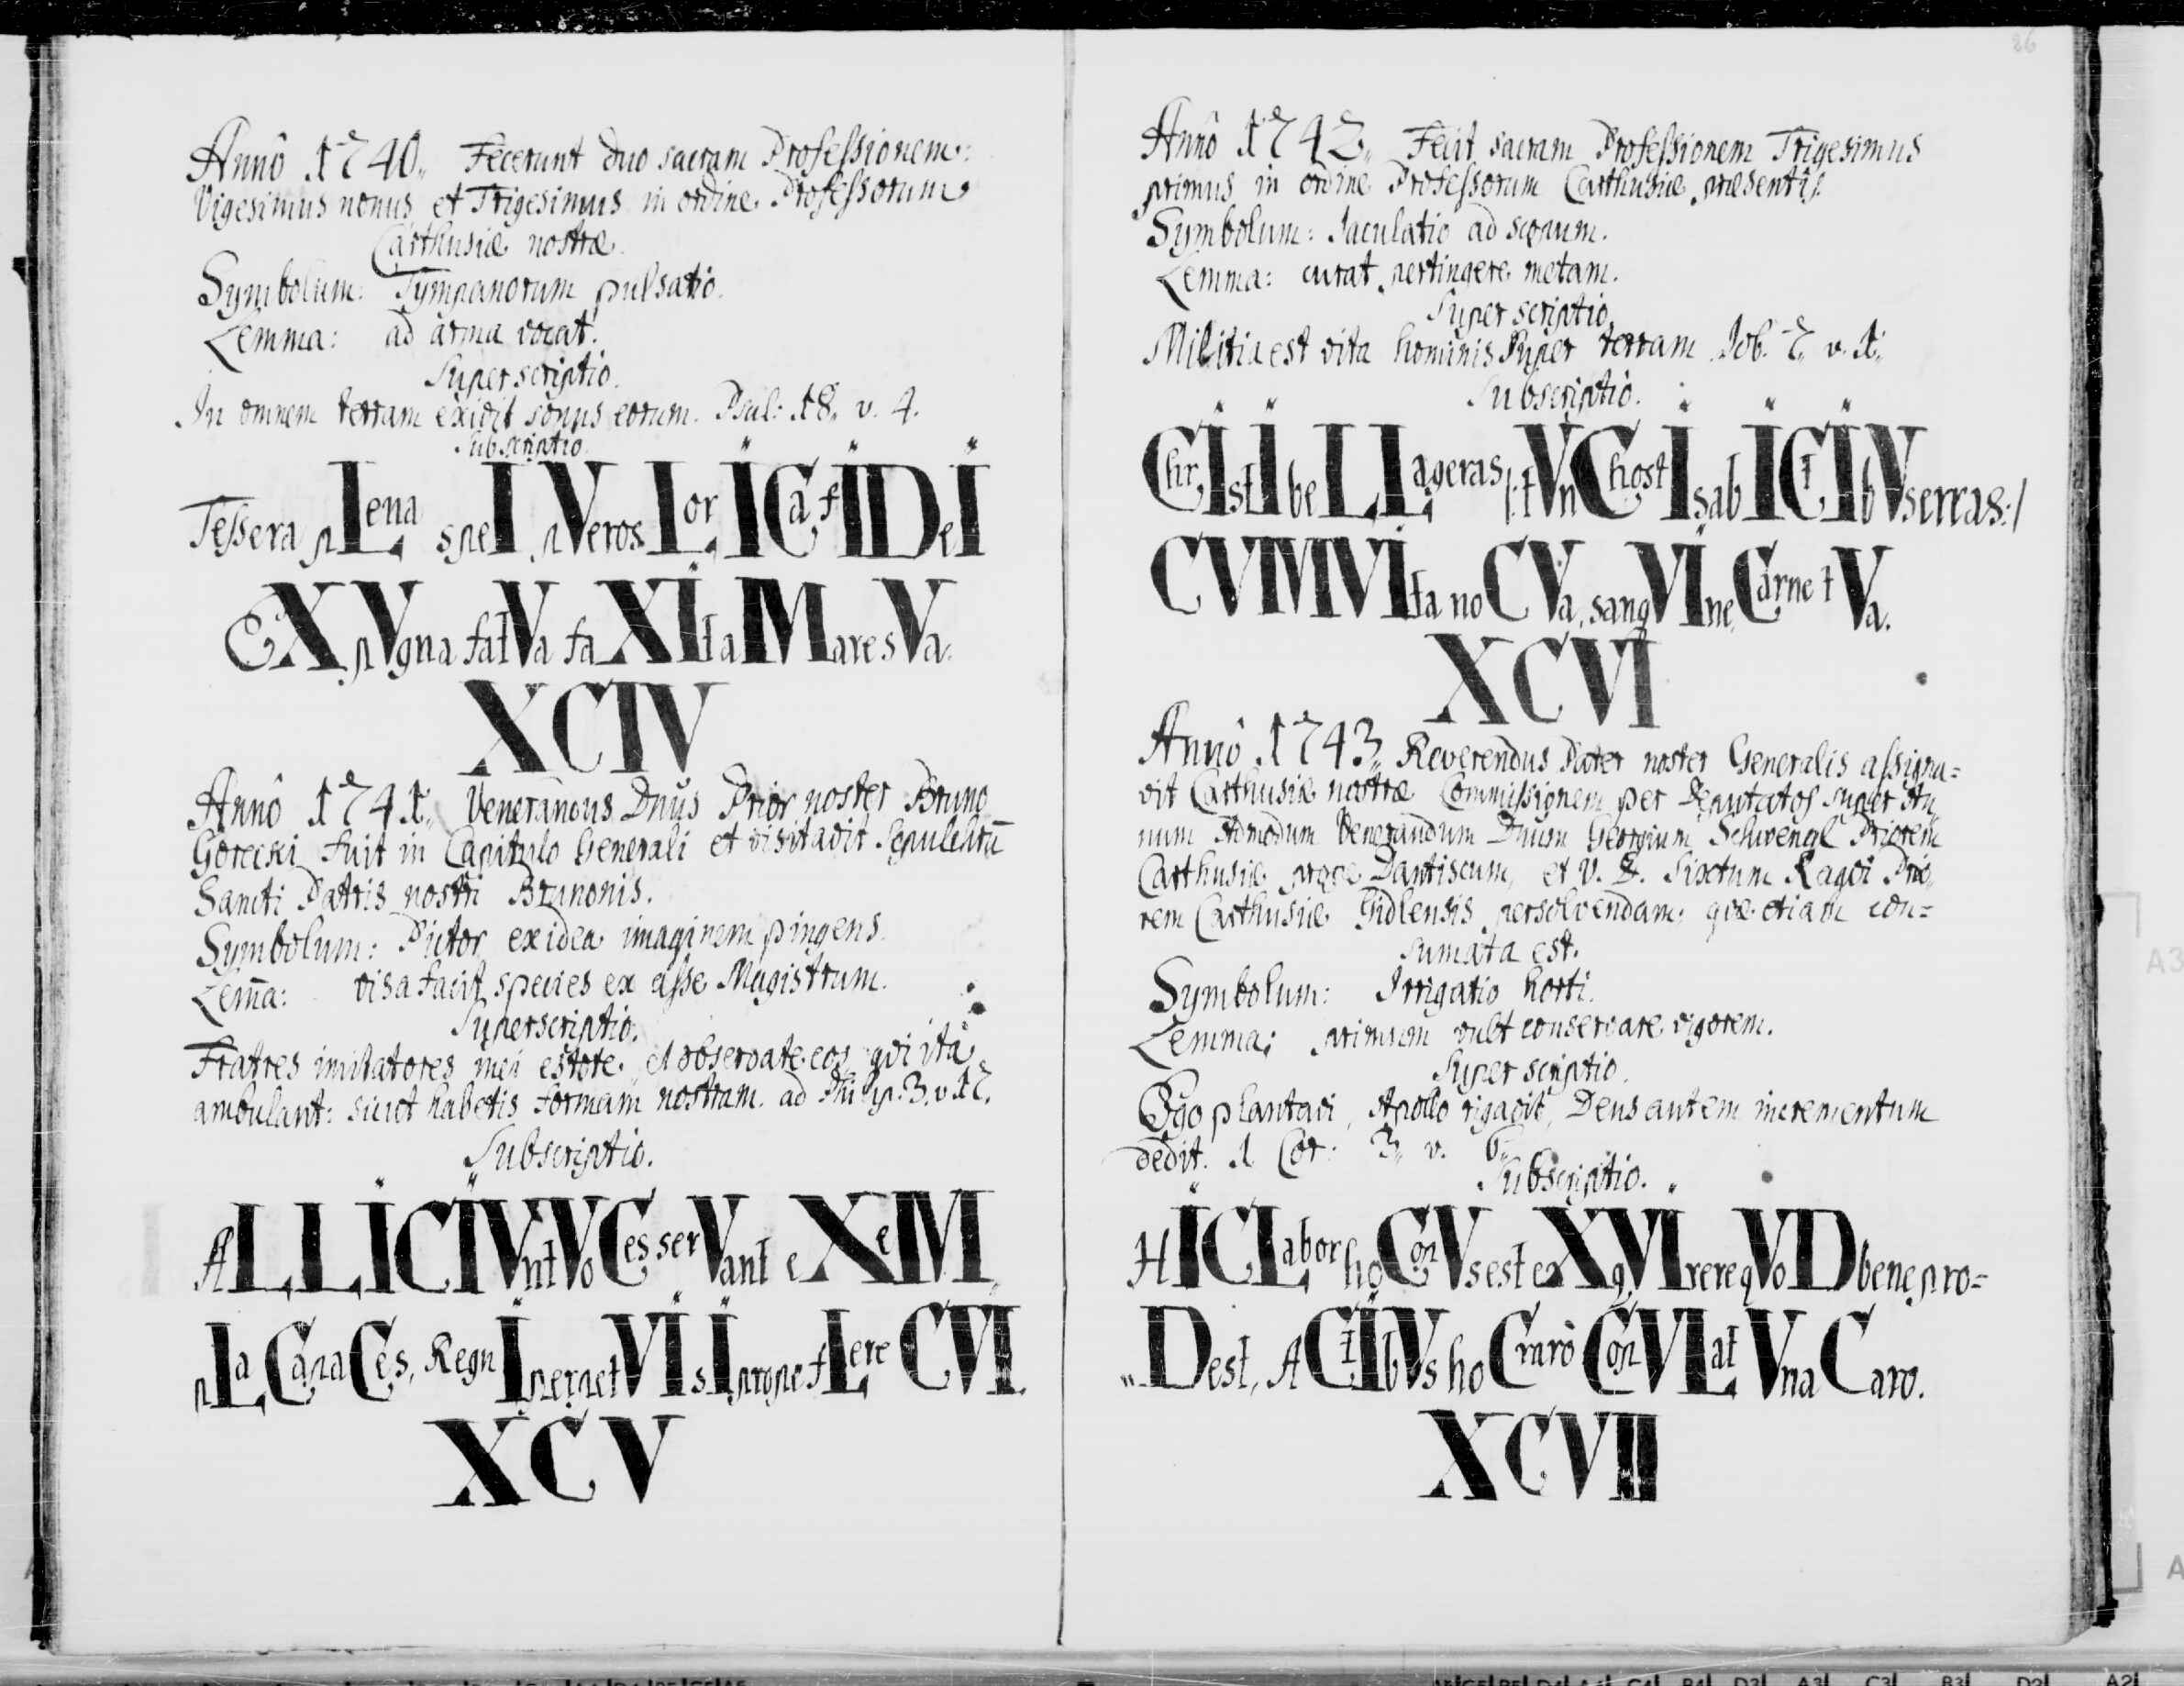 Annô 1740. Fecerunt duo sacram Professionem:
Vigesimus nonus et Trigesimus in ordine Professorum
Carthusiæ nostræ.
Symbolum: Tympanorum pulsatio.
Lemma: ad arma vocat.
Superscriptio.
In omnem terram exivit sonus eorum. Psal: 18. v. 4.
Subscriptio.
Tessera pLena speI pVeros LorICa fIDeI
EX pVgna fatVa faXIta MaresVa.
XCIV
Annô 1741. Venerandus Dnus Prior noster Bruno
Gorecki fuit in Capitulo Generali et visitavit Sepulchrū
Sancti Patris nostri Brunonis.
Symbolum: Pictor ex idea imaginem pingens.
Lem̄a: visa facit species ex asse Magistrum.
Superscriptio.
Fratres imitatores mei estote. et observate eos qvi ita
ambulant: sicut habetis formam nostram. ad Philip. 3. v. 17.
Subscriptio.
ALLICIVnt VoCes serVant eXeM
pLa CapaCes, RegnI perpetVI sI prope fLere CVI.
XCV
26
Annô 1742. Fecit sacram Professionem Trigesimus
primus in ordine Professorum Carthusiæ præsentis.
Symbolum: Jaculatio ad scopum.
Lemma: curat pertingere metam.
Superscriptio.
Militia est vita hominis super terram Job. 7. v. 1.
Subscriptio.
ChrIstI beLLI ageras /:tVnC hostIs ab ICtIbVs erras:/
CVM VIta noCVa, sangVIne, Carne tVa.
XCVI
Annô 1743. Reverendus Pater noster Generalis assigna=
vit Carthusiæ nostræ Commissionem per deputatos super
num Admodum Venerandum Dnum Georgium Schwengl Priorem
Carthusiæ prope Dantiscum, et V. D. Sixtum Prio
rem Carthusiæ Gidlensis persolvendam: qvæ etiam con=
sumata est.
Symbolum: Irrigatio horti.
Lemma: primum vult conservare vigorem.
Superscriptio.
Ego plantavi, Apollo rigavit, Deus autem incrementum
dedit. 1 Cor: 3. v. 6.
Subscriptio.
HIC Labor hoC onVs est eX qVIrere qVoD bene pro=
„Dest, ACtIbVs hoC raro ConVLat Vna Caro.
XCVII